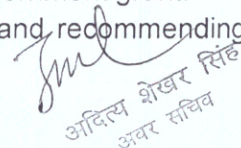 and recommending
आदित्य शेखर सिंह
अवर सचिव